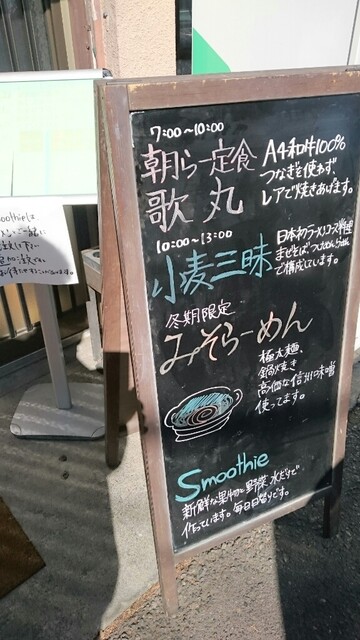 7:00〜10:00
朝らー定食
歌丸
A4和牛100%
つなぎを使わず、
レアで焼きあげます。
10:00〜13:00
小麦三昧
日本初ラーメンコース料理
まぜそば つけめん らーめん
で構成しています。
冬期限定
みそらーめん
極太麺、
鍋焼き
高価な信州味噌
使ってます。
Smoothie
新鮮な果物と野菜、水だけで
作っています。毎日日替りです。